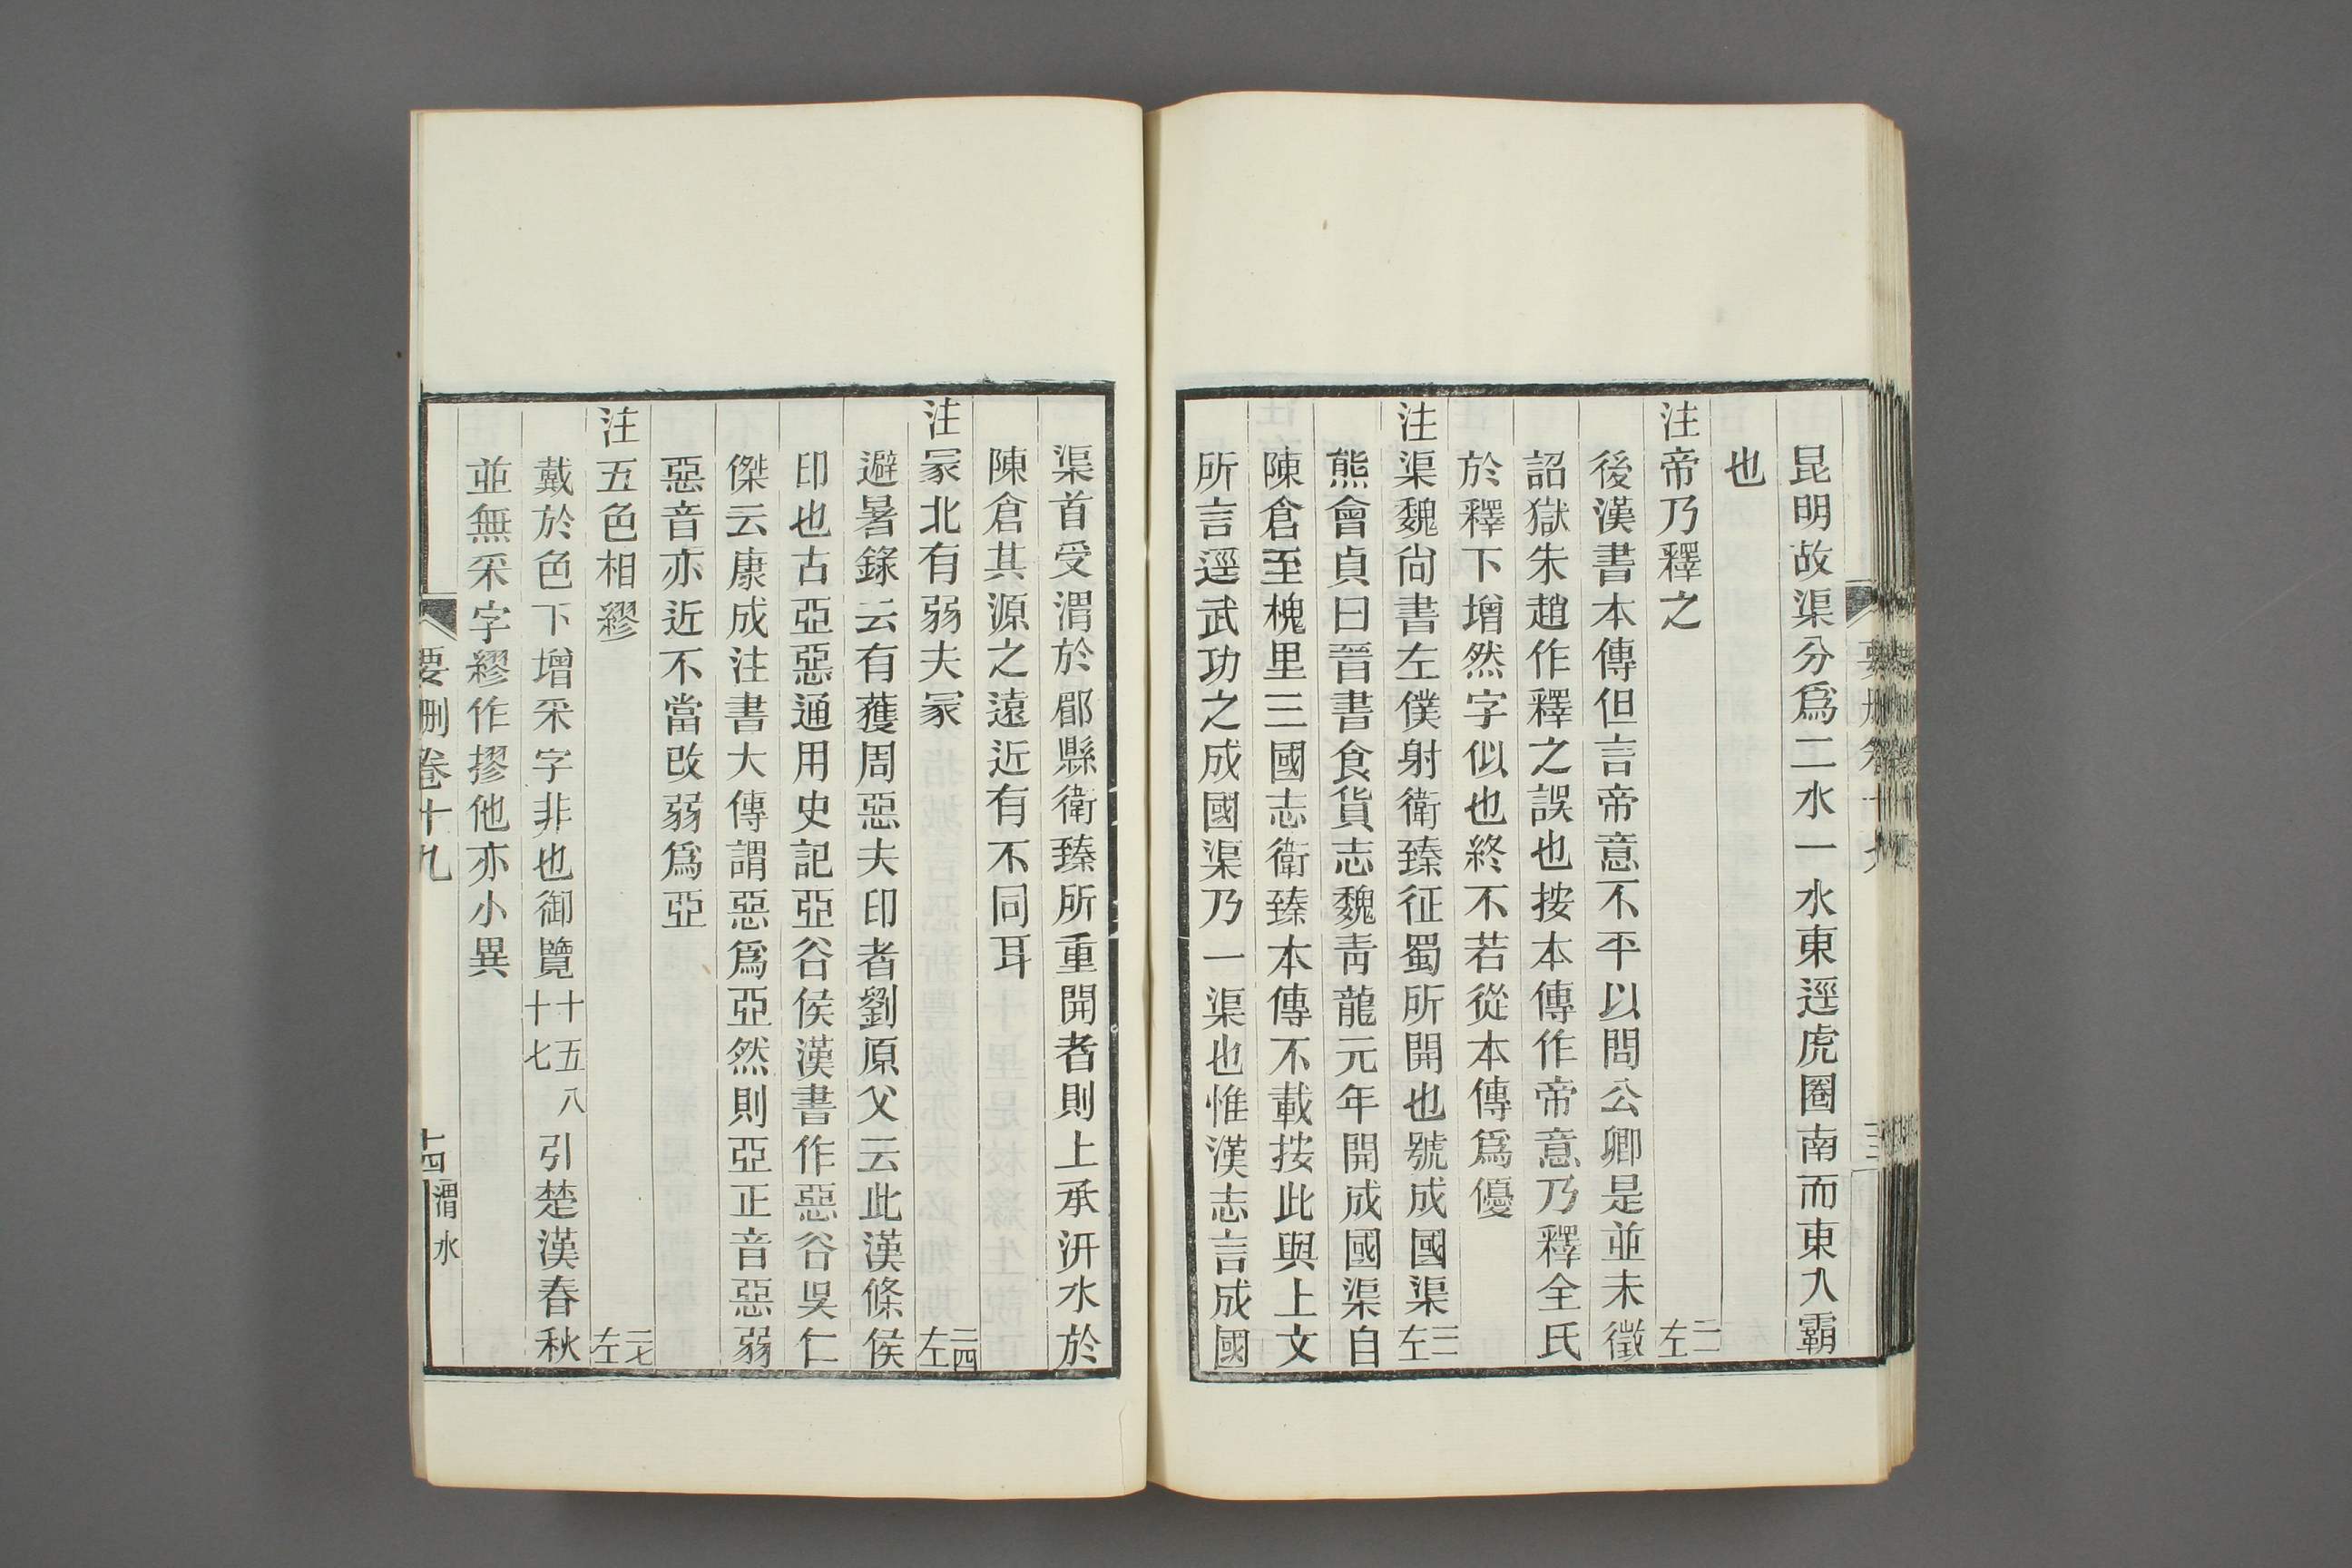 昆明故渠分爲二水一水東逕虎圈南而東入霸
也
注帝乃釋之 二一左
後漢書本傳但言帝意不平以問公卿是並未徵
詔獄朱趙作釋之誤也按本傳作帝意乃釋全氏
於釋下增然字似也終不若從本傳爲優
注渠魏尙書左僕射衛臻征蜀所開也號成國渠 二二左
熊會貞曰晉書食貨志魏靑龍元年開成國渠自
陳倉至槐里三國志衛臻本傳不載按此與上文
所言逕武功之成國渠乃一渠也惟漢志言成國
渠首受渭於郿縣衛臻所重開者則上承汧水於
陳倉其源之遠近有不同耳
注冢北有弱夫冢 二四左
避暑錄云有獲周惡夫印者劉原父云此漢條侯
印也古亞惡通用史記亞谷侯漢書作惡谷吳仁
傑云康成注書大傳謂惡爲亞然則亞正音惡弱
惡音亦近不當改弱爲亞
注五色相繆 二七左
戴於色下增采字非也御覽十五八十七引楚漢春秋
並無采字繆作摎他亦小異
要刪卷十九
十四
渭水